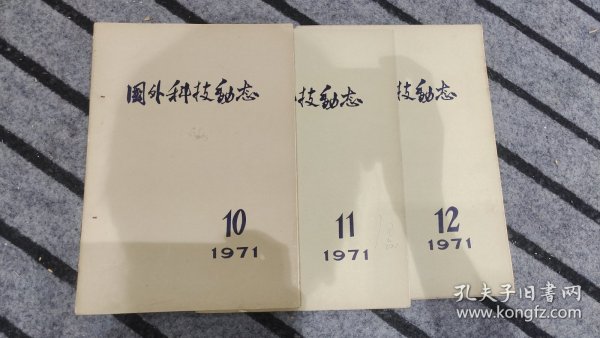 国外科技动态
10
1971
技动态
11
1971
技动态
12
1971
孔夫子旧书网
www.kongfz.com